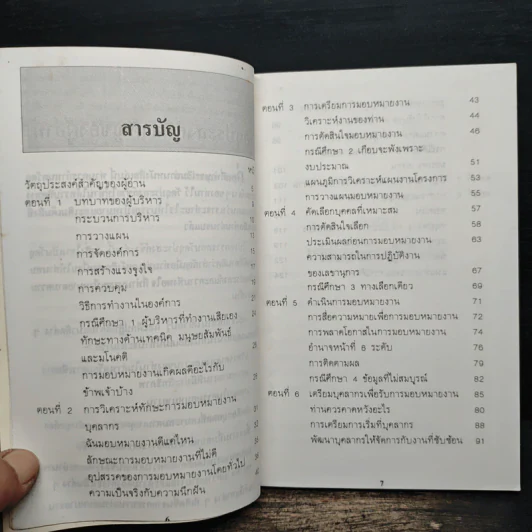 สารบัญ
วัตถุประสงค์สำคัญของผู้อ่าน
ตอนที่ 1 บทบาทของผู้บริหาร
กระบวนการบริหาร
การวางแผน
การจัดองค์การ
การสร้างแรงจูงใจ
การควบคุม
วิธีการทำงานในองค์การ
กรณีศึกษา 1 ผู้บริหารที่ทำงานเสียเอง
ทักษะทางด้านเทคนิค มนุษยสัมพันธ์
และมโนคติ
การมอบหมายงานเกิดผลดีอะไรกับ
ข้าพเจ้าบ้าง
ตอนที่ 2 การวิเคราะห์ทักษะการมอบหมายงาน
บุคลากร
ฉันมอบหมายงานดีแค่ไหน
ลักษณะการมอบหมายงานที่ไม่ดี
อุปสรรคของการมอบหมายงานโดยทั่วไป
ความเป็นจริงกับความนึกฝัน
6
ตอนที่ 3 การเตรียมการมอบหมายงาน 43
วิเคราะห์งานของท่าน 44
การตัดสินใจมอบหมายงาน 46
กรณีศึกษา 2 เกือบจะพังเพราะ
งบประมาณ 51
แผนภูมิการวิเคราะห์แผนงานโครงการ 53
การวางแผนมอบหมายงาน 55
ตอนที่ 4 คัดเลือกบุคคลที่เหมาะสม 57
การตัดสินใจเลือก 58
ประเมินผลก่อนการมอบหมายงาน 63
ความสามารถในการปฏิบัติงาน
ของเลขานุการ 67
กรณีศึกษา 3 ทางเลือกเดียว 69
ตอนที่ 5 ดำเนินการมอบหมายงาน 71
การสื่อความหมายเพื่อการมอบหมายงาน 72
การพลาดโอกาสในการมอบหมายงาน 74
อำนาจหน้าที่ 6 ระดับ 76
การติดตามผล 79
กรณีศึกษา 4 ข้อมูลที่ไม่สมบูรณ์ 82
ตอนที่ 6 เตรียมบุคลากรเพื่อรับการมอบหมายงาน 85
ท่านควรคาดหวังอะไร 80
การเตรียมการเริ่มที่บุคลากร 88
พัฒนาบุคลากรให้จัดการกับงานที่ซับซ้อน 91
7